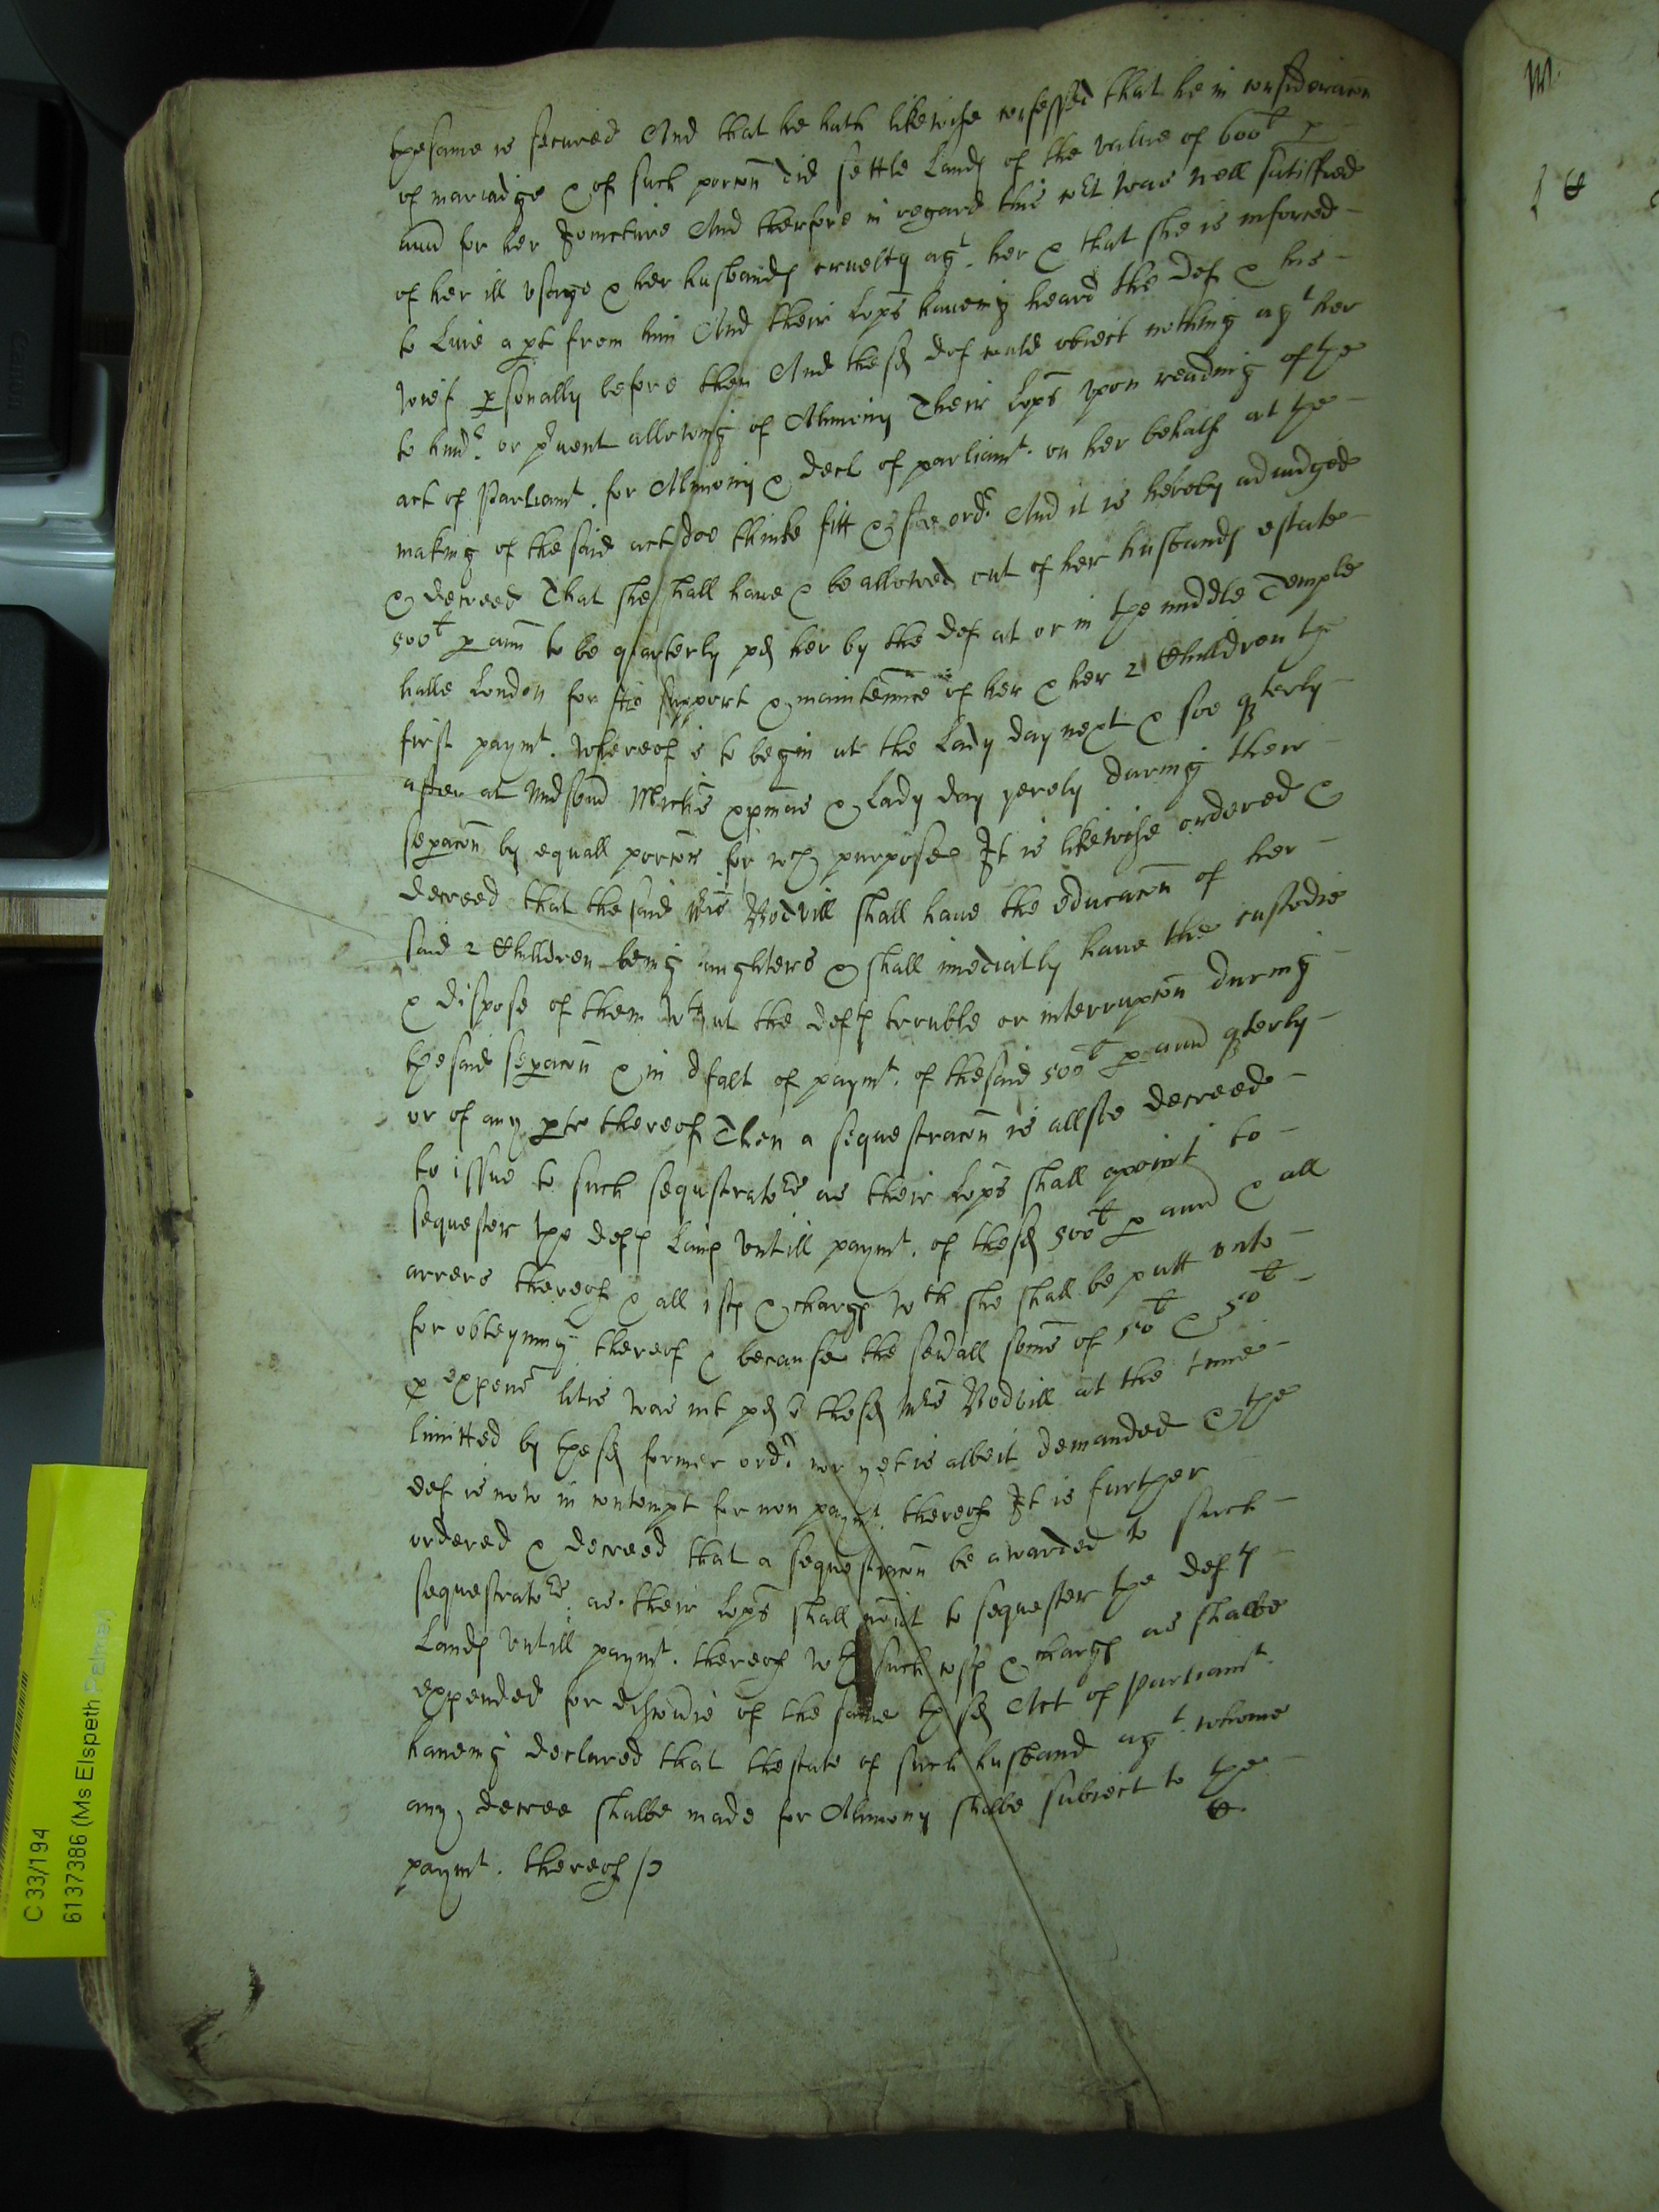 thesame is secured And that he hath likewise confessed that he in consideracon
of mariadge & of such porcon did settle Lands of the value of 600l p
ann for her Joincture And therfore in regard this Cort was well satisfied
of her ill vsage & her husbands cruelty agt. her & that she is inforced –
to Live apt from him And their Lopps haueing heard the Def & his –
wief psonally before them And the sd Def could obiect nothing agt her
to hind. or pvent allowing of Alimony Their Lopps vpon reading of the
act of Parliamt. for Alimony & decl of parliamt. on her behalf at the –
making of the said act doe thinke fitt & soe ord. And it is hereby adiudged
& decreed That she shall haue & be allowed out of her husbands estate –
500l p ann to be quarterly pd her by the Def at or in the middle Temple
halle London for the support & maintennce of her & her 2 Children the
first paymt. Whereof is to begin at the Lady day next & soe qterly –
after at Midsomr Michs xpmas & Lady day yerely during their –
sepacon by equall porcons for wch purposes It is likewise ordered &
decreed that the said Mris Bodvill shall haue the educacon of her –
said 2 Children being daughters & shall imediatly haue the custodie
& dispose of them wthout the defts trouble or interrupcon during –
the said sepacon & in dfalt of paymt. of the said 500l p ann qterly –
or of any pte thereof Then a sequestracon is allsoe decreed –
to issue to such sequstrators as their Lopps shall apoint to –
sequester the defts Lands vntill paymt. of the sd 500l p ann & all
arrers thereof & all costs & charges wch she shall be putt vnto –
for obteyning thereof & because the seuall somes of 50l & 50l –
p expens litis was not pd to the sd Mris Bodvill at the time –
limitted by the sd former ord. nor yet is albeit demanded & the
def is now in contempt for non paymt. thereof It is further
ordered & decreed that a sequestracon be awarded to such –
sequestrators as their Lopps shall apoint to sequester the defts –
Lands vntill paymt. thereof wth such costs & charges as shalbe
expended for of the same the sd Act of Parliamt.
haueing declared that thestate of such husband agt. whome
any decree shalbe made for Alimony shalbe subiect to the –
paymt. thereof
C 33/194
6137386 (Ms Elspeth Palmer)